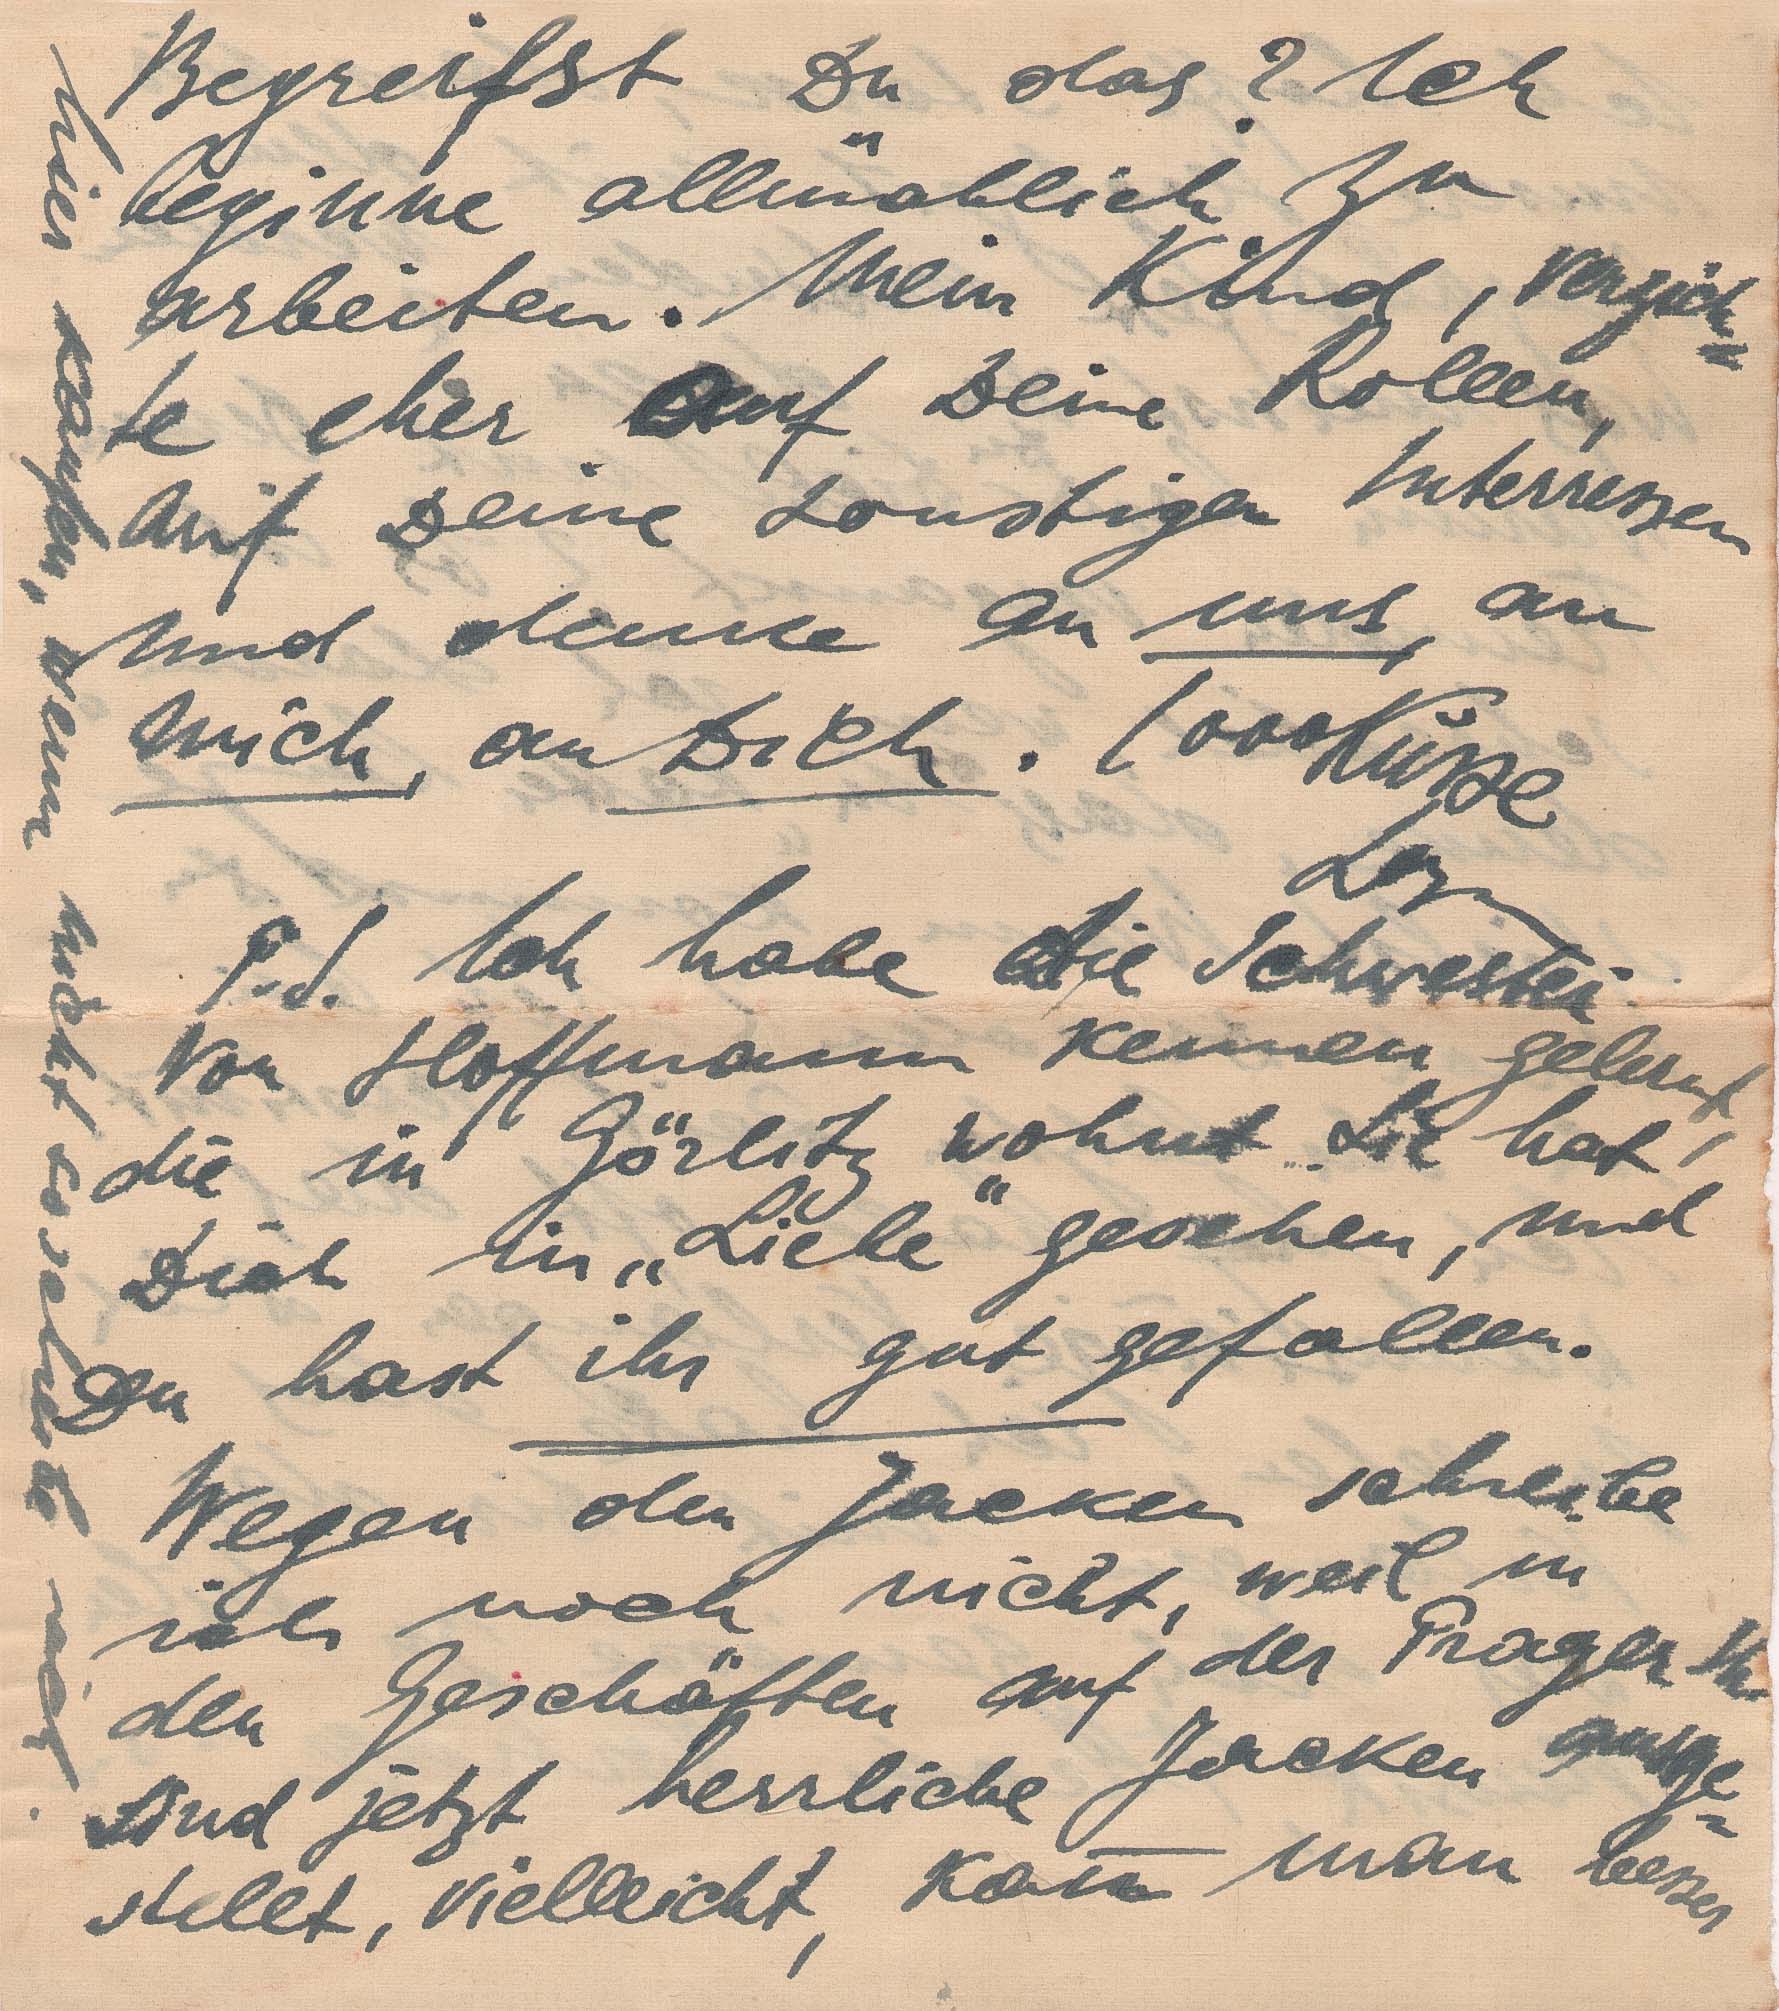 Begreifst Du das? Ich
beginne allmählich zu
arbeiten. Mein Kind, verzich=
te eher auf Deine Rollen,
auf Deine sonstigen Interressen
und denke an uns, an
mich, an Dich. 1000 Küsse
P.S. Ich habe die Schwester
von Hoffmann kennen gelernt,
die in Görlitz wohnt. Sie hat
Dich in „Liebe" gesehen, und
Du hast ihr gut gefallen.
Wegen den Jacken schreibe
ich noch nicht, weil in
den Geschäften auf der Prager Str.
sind jetzt herrliche Jacken ausge=
stellt, vielleicht, kan̄ man besser
hier kaufen, wenn nicht so schreibe mir.